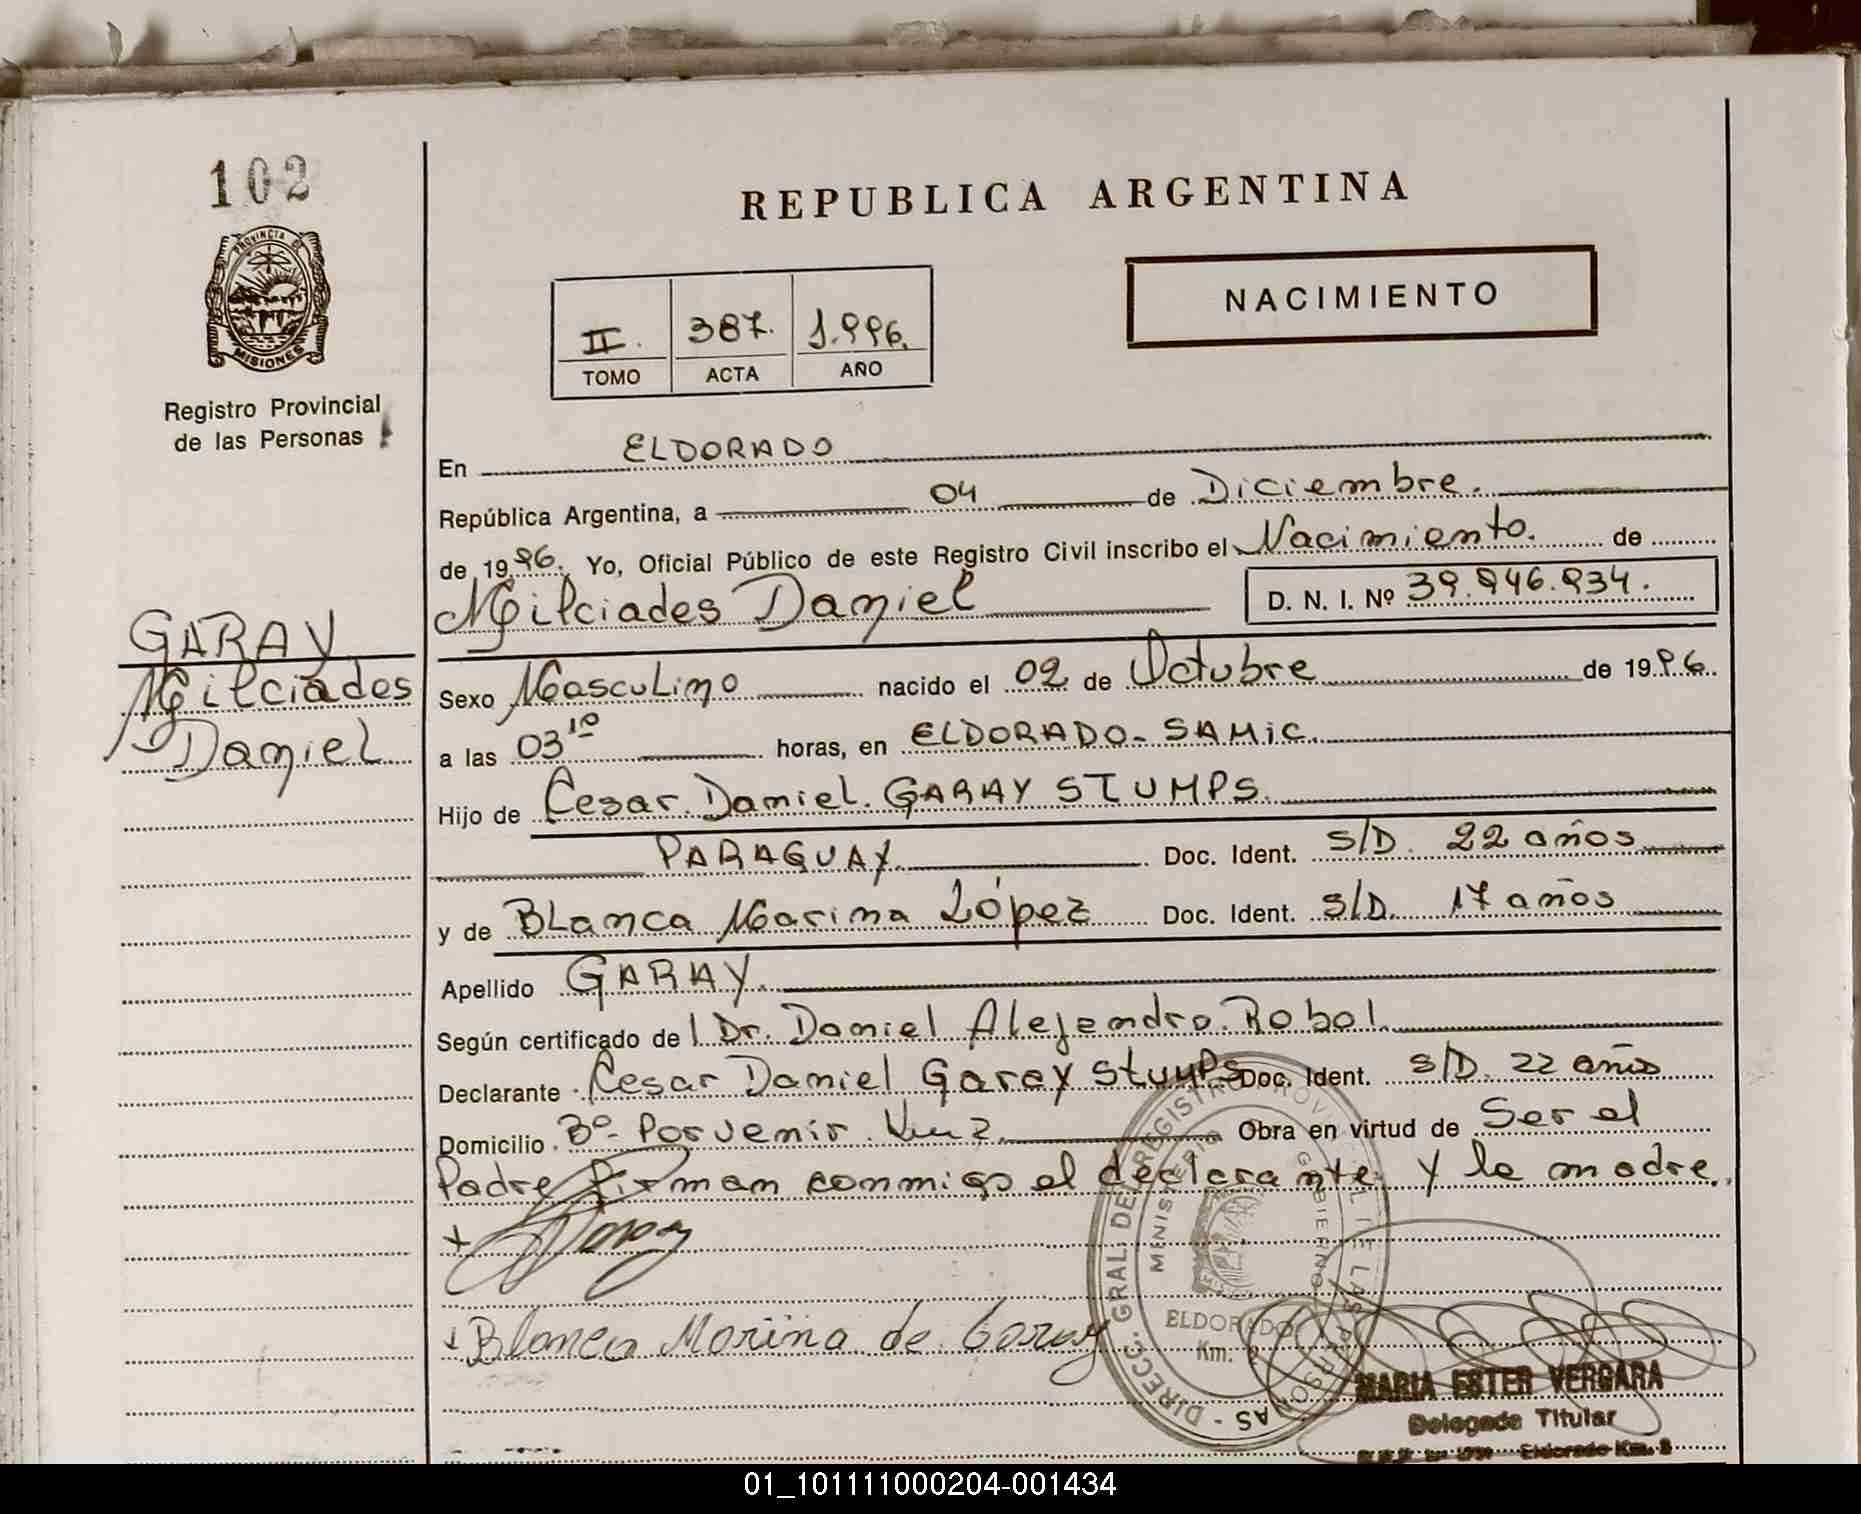 102
PROVINCIA DE
MISIONES
Registro Provincial
de las Personas
GARAY
Milciades
Daniel
REPUBLICA ARGENTINA
NACIMIENTO
II. 387. 1.996.
TOMO ACTA AÑO
En ELDORADO
República Argentina, a 04 de Diciembre.
de 1996. Yo, Oficial Público de este Registro Civil inscribo el Nacimiento. de
Milciades Daniel D. N. I. Nº 39.946.934.
Sexo Masculino nacido el 02 de Octubre de 1996.
a las 03 10 horas, en ELDORADO-SAMiC.
Hijo de Cesar Daniel GARAY STUMPS.
PARAGUAY. Doc. Ident. S/D. 22 años
y de Blanca Marina López Doc. Ident. S/D. 17 años
Apellido GARAY.
Según certificado del Dr. Daniel Alejandro Robol.
Declarante Cesar Daniel Garay Stumps Doc. Ident. S/D. 22 años
Domicilio Bº Porvenir Obra en virtud de Ser el
Padre firman conmigo el declarante y la madre.
+
+ Blanca Marina de Garay
DIRECC. GRAL. DE REGISTRO PROVINCIAL DE LAS PERSONAS
MINISTERIO GOBIERNO
ELDORADO
Km: 2
MARIA ESTER VERGARA
Delegada Titular
Eldorado Km.
01_101111000204-001434